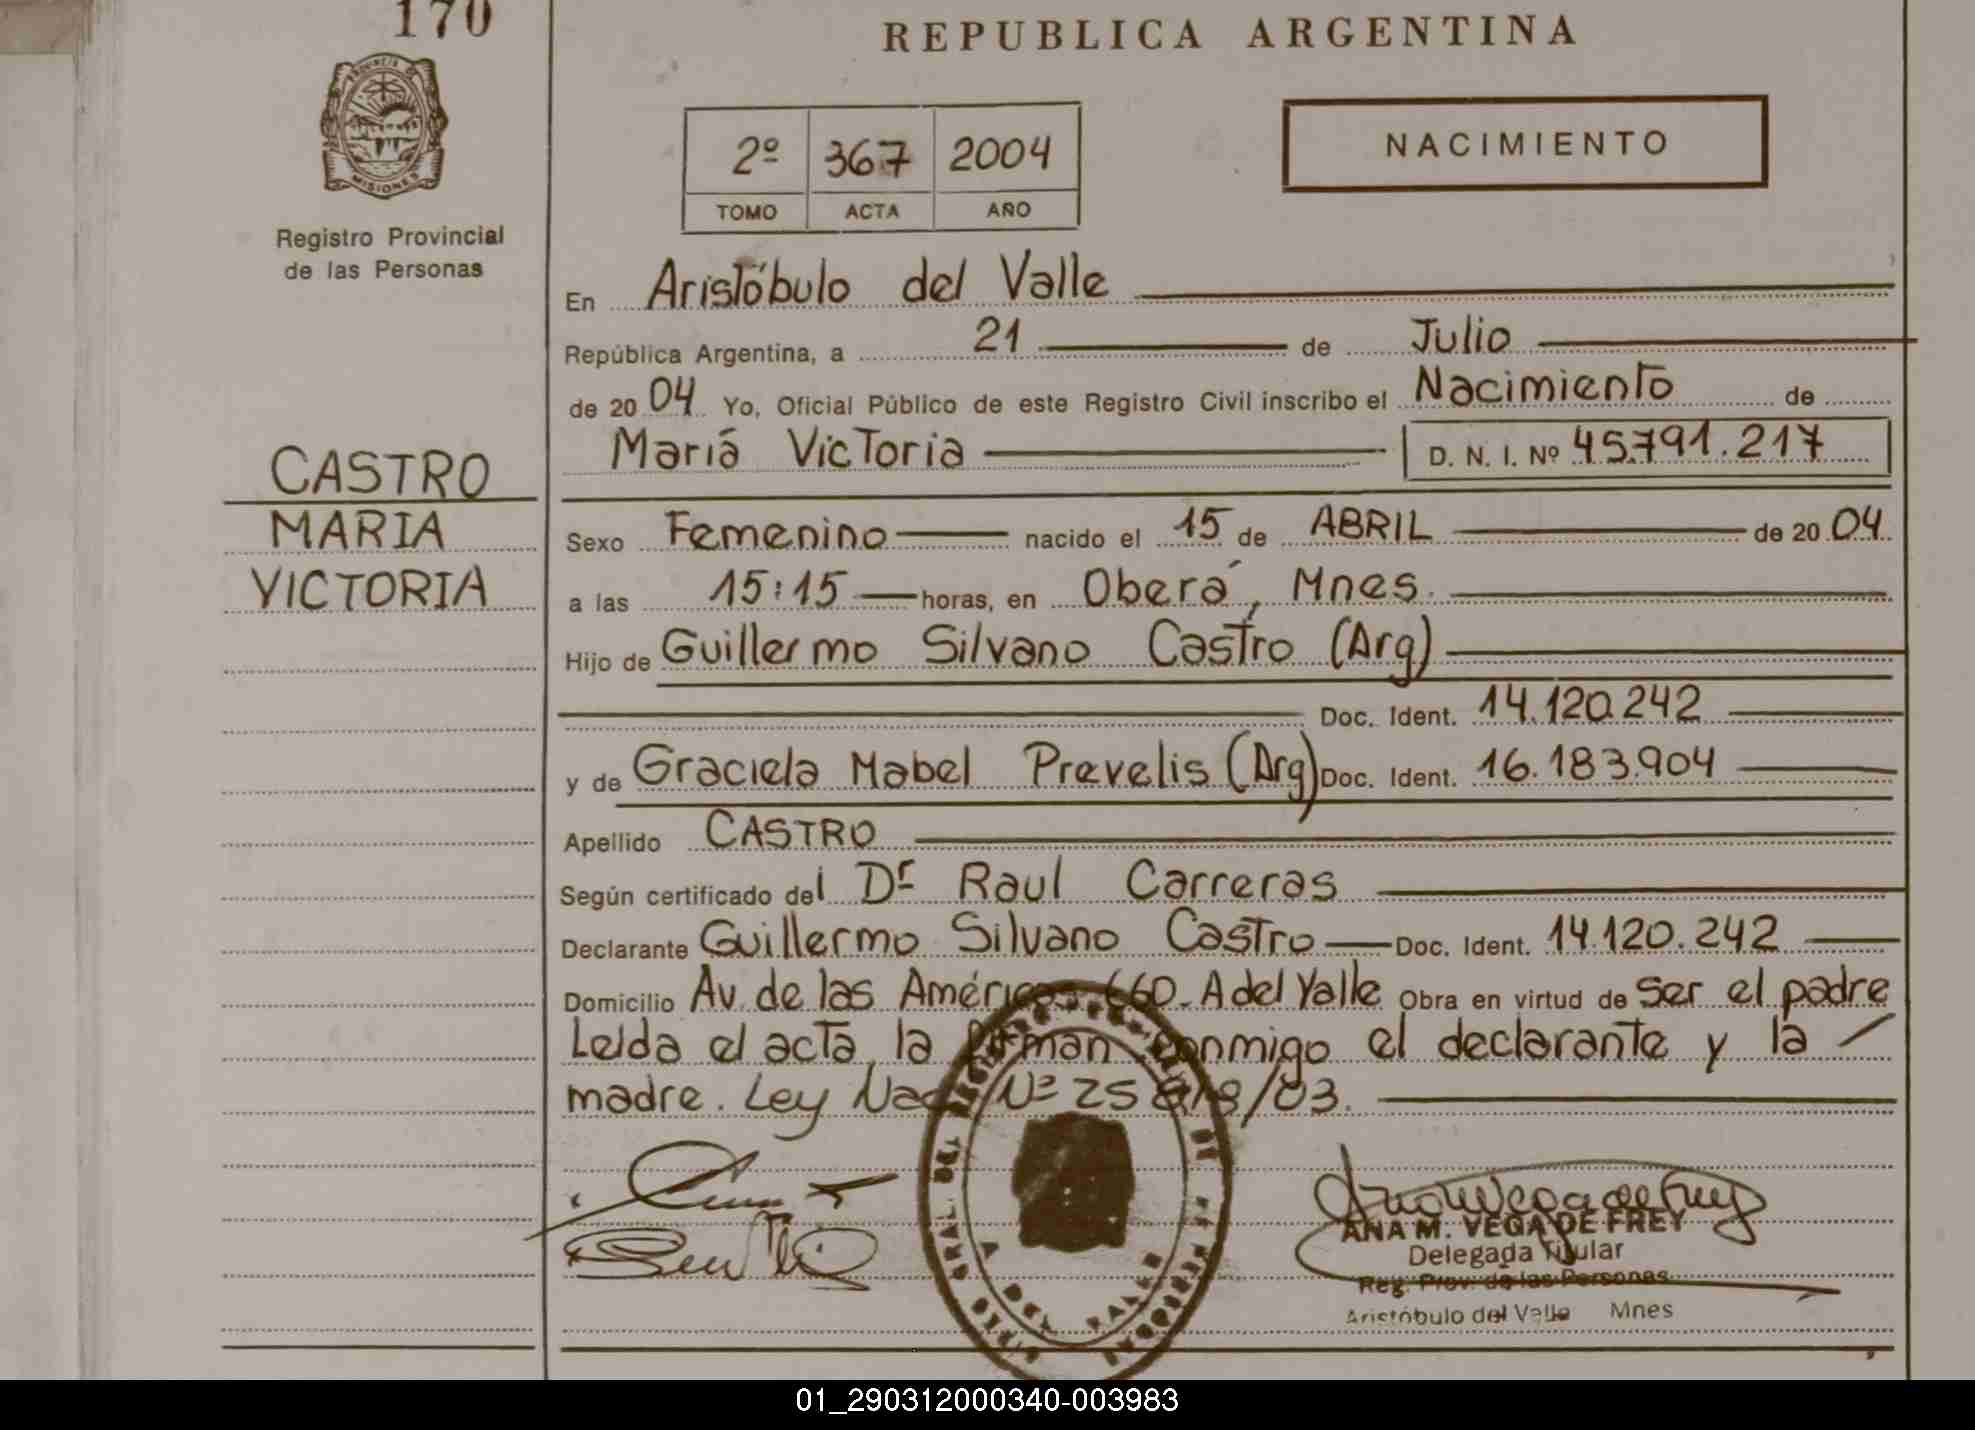 170
REPUBLICA ARGENTINA
PROVINCIA DE
MISIONES
Registro Provincial
de las Personas
2º 367 2004
TOMO ACTA AÑO
NACIMIENTO
En Aristóbulo del Valle
República Argentina, a 21 de Julio
de 2004 Yo, Oficial Público de este Registro Civil inscribo el Nacimiento de
Mariá Victoria D. N. I. Nº 45.791.217
CASTRO
MARIA
VICTORIA
Sexo Femenino nacido el 15 de ABRIL de 2004
a las 15:15 horas, en Oberá, Mnes.
Hijo de Guillermo Silvano Castro (Arg)
Doc. Ident. 14.120.242
y de Graciela Mabel Prevelis (Arg) Doc. Ident. 16.183.904
Apellido CASTRO
Según certificado del Dr Raul Carreras
Declarante Guillermo Silvano Castro Doc. Ident. 14.120.242
Domicilio Av. de las Américas 660. A del Valle Obra en virtud de ser el padre
Leída el acta, la firman conmigo el declarante y la
madre. Ley Nac Nº 25 818/03.
A DEL VALLE
ANA M. VEGA DE FREY
Delegada Titular
Reg. Prov. de las Personas
Aristóbulo del Valle Mnes
01_290312000340-003983